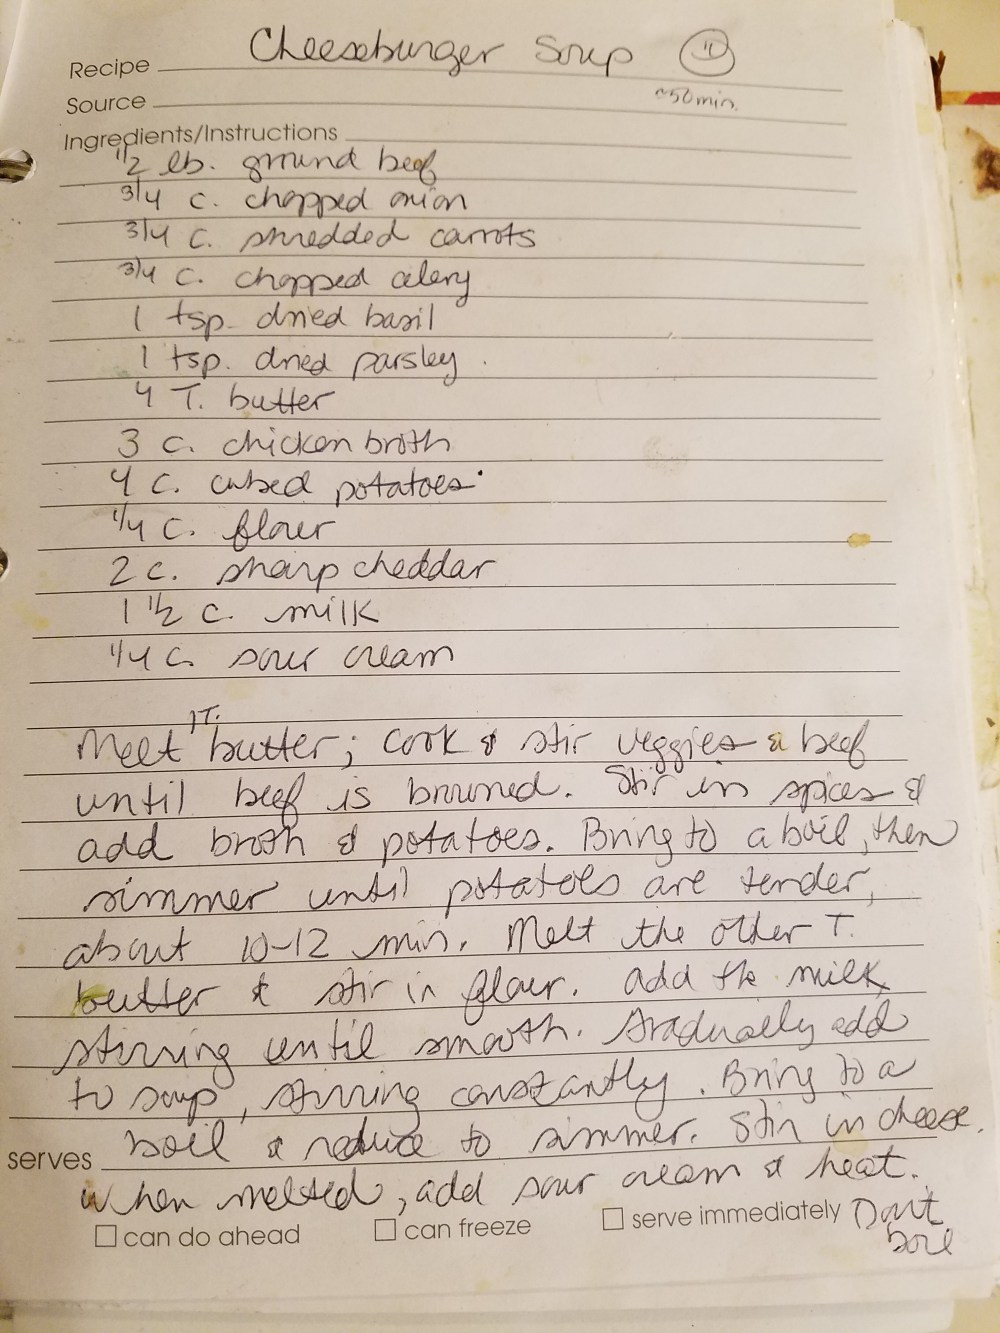 Recipe Cheeseburger Soup
Source ~50 min.
Ingredients/Instructions
1/2 lb. ground beef
3/4 c. chopped onion
3/4 c. shredded carrots
3/4 c. chopped celery
1 tsp. dried basil
1 tsp. dried parsley
4 T. butter
3 c. chicken broth
4 c. cubed potatoes
1/4 c. flour
2 c. sharp cheddar
1 1/2 c. milk
1/4 c. sour cream
1T.
Melt butter; cook & stir veggies & beef
until beef is browned. Stir in spices &
add broth & potatoes. Bring to a boil, then
simmer until potatoes are tender,
about 10-12 min. Melt the other T.
butter & stir in flour. Add the milk,
stirring until smooth. Gradually add
to soup, stirring constantly. Bring to a
boil & reduce to simmer. Stir in cheese.
serves
When melted, add sour cream & heat.
can do ahead can freeze serve immediately Don't
boil